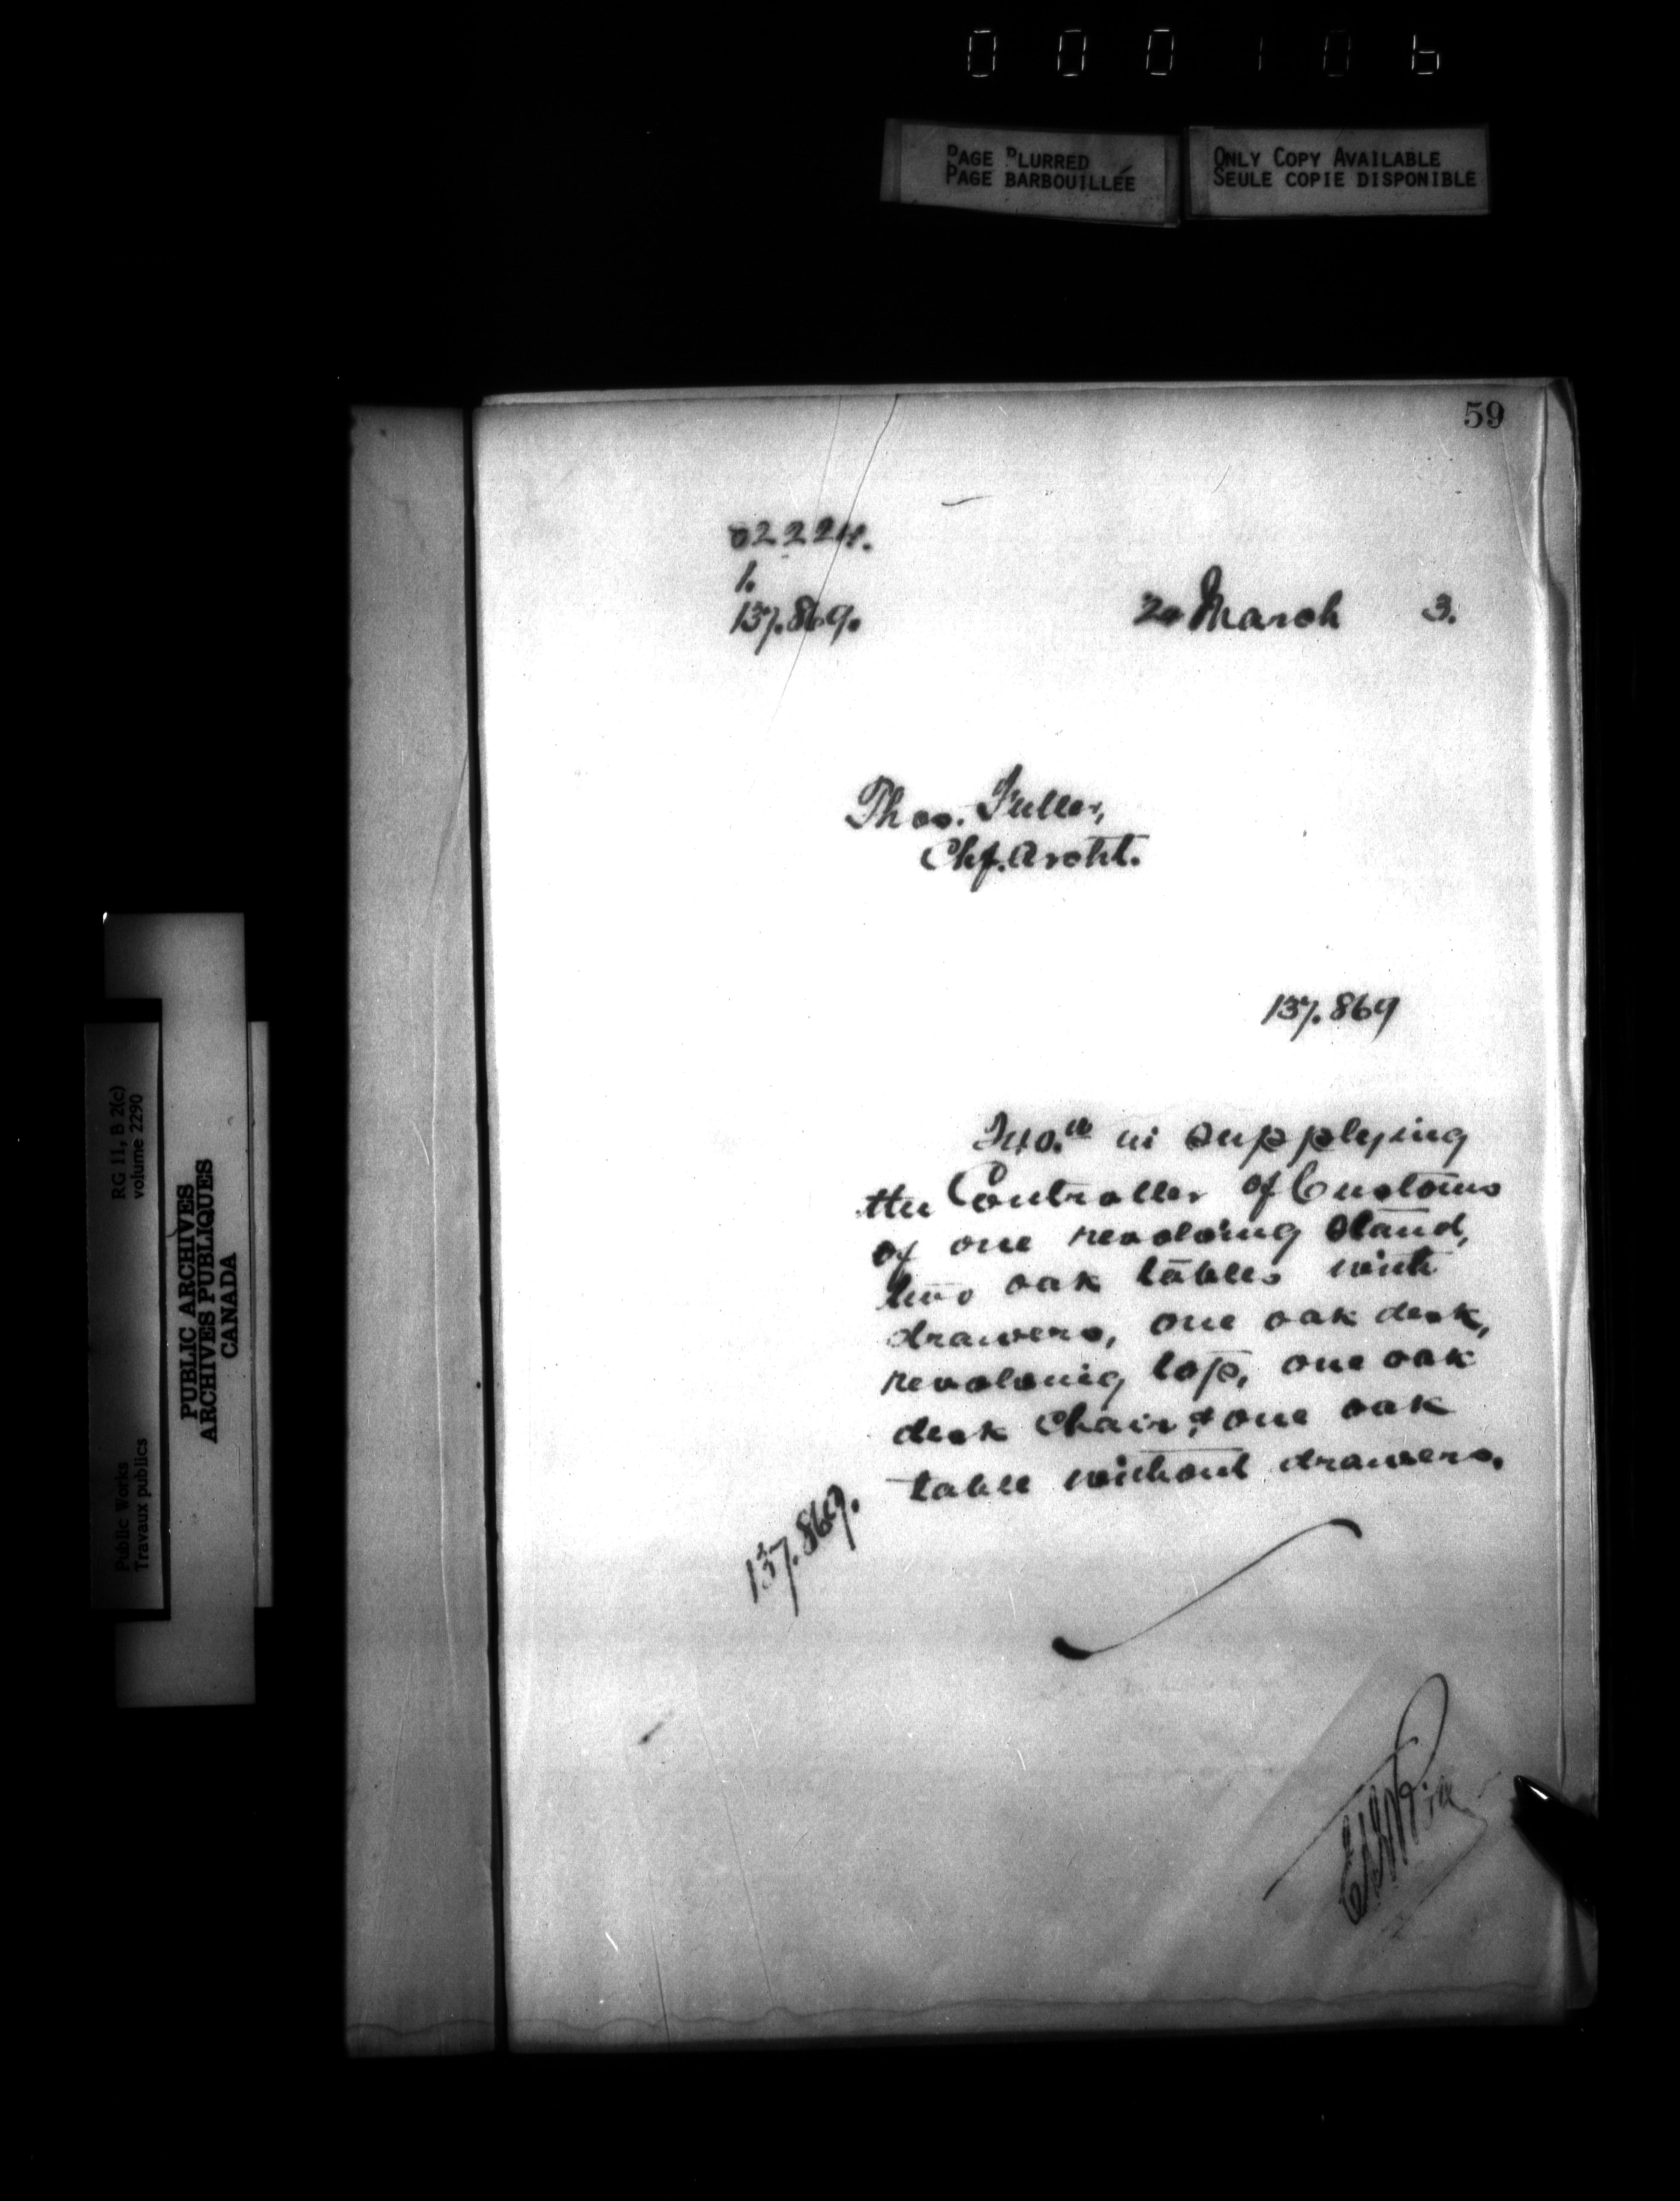 000106
PAGE BLURRED
PAGE BARBOUILLÉE
ONLY COPY AVAILABLE
SEULE COPIE DISPONIBLE
59
02224.
1.
137.869.
March 3.
Thos. Fuller,
Chf. Archt.
137.869
in supplying
the Controller of Customs
of one revolving stand,
two oak tables with
drawers, one oak desk,
revolving top, one oak
desk chair, & one oak
table without drawers.
137.869.
RG 11, B 2(c)
volume 2290
PUBLIC ARCHIVES
ARCHIVES PUBLIQUES
CANADA
Public Works
Travaux publics